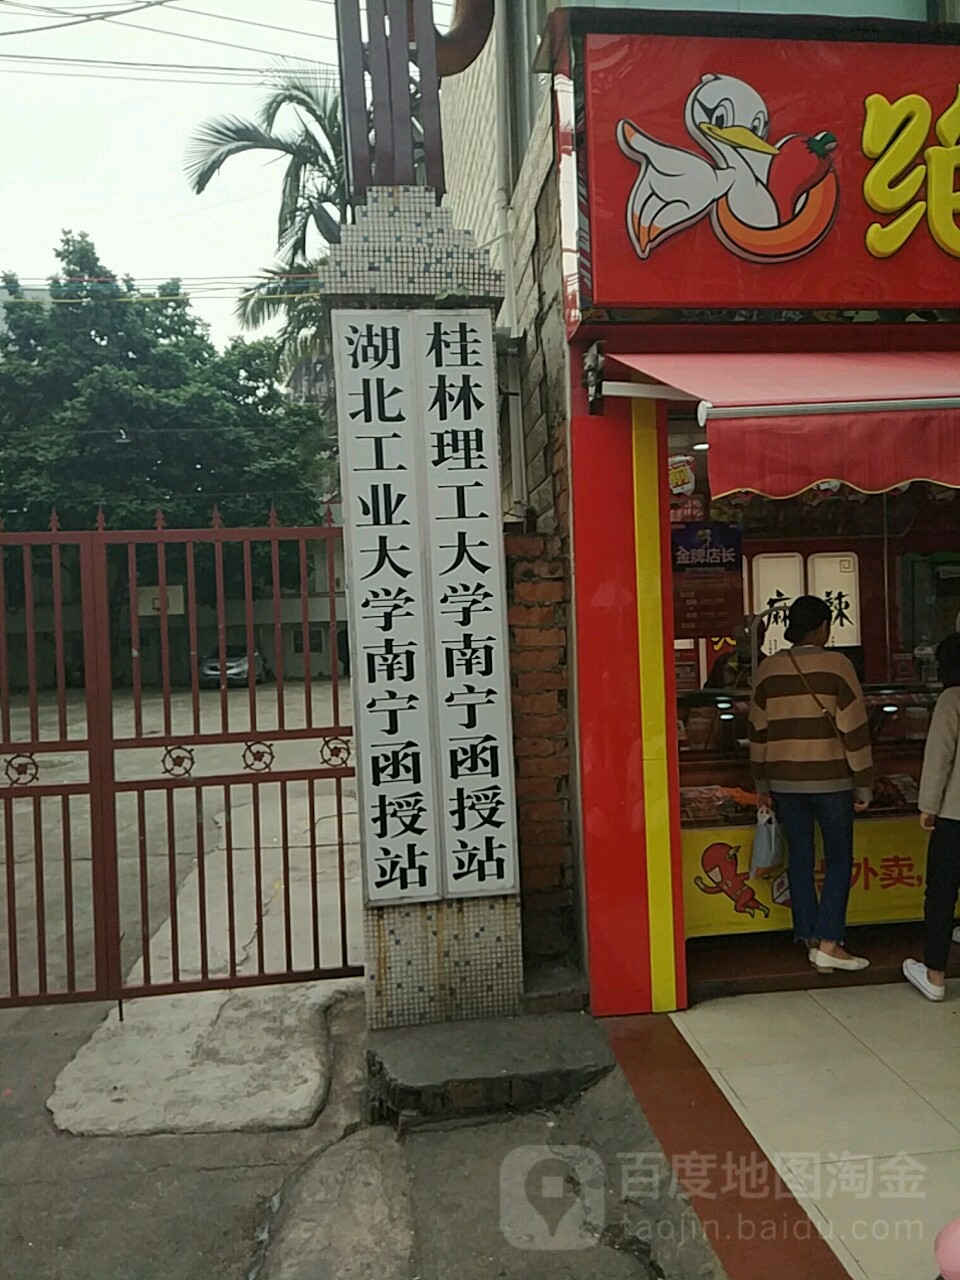 绝
桂林理工大学南宁函授站
湖北工业大学南宁函授站
金牌店长
麻辣
外卖,
百度地图淘金
taojin.baidu.com